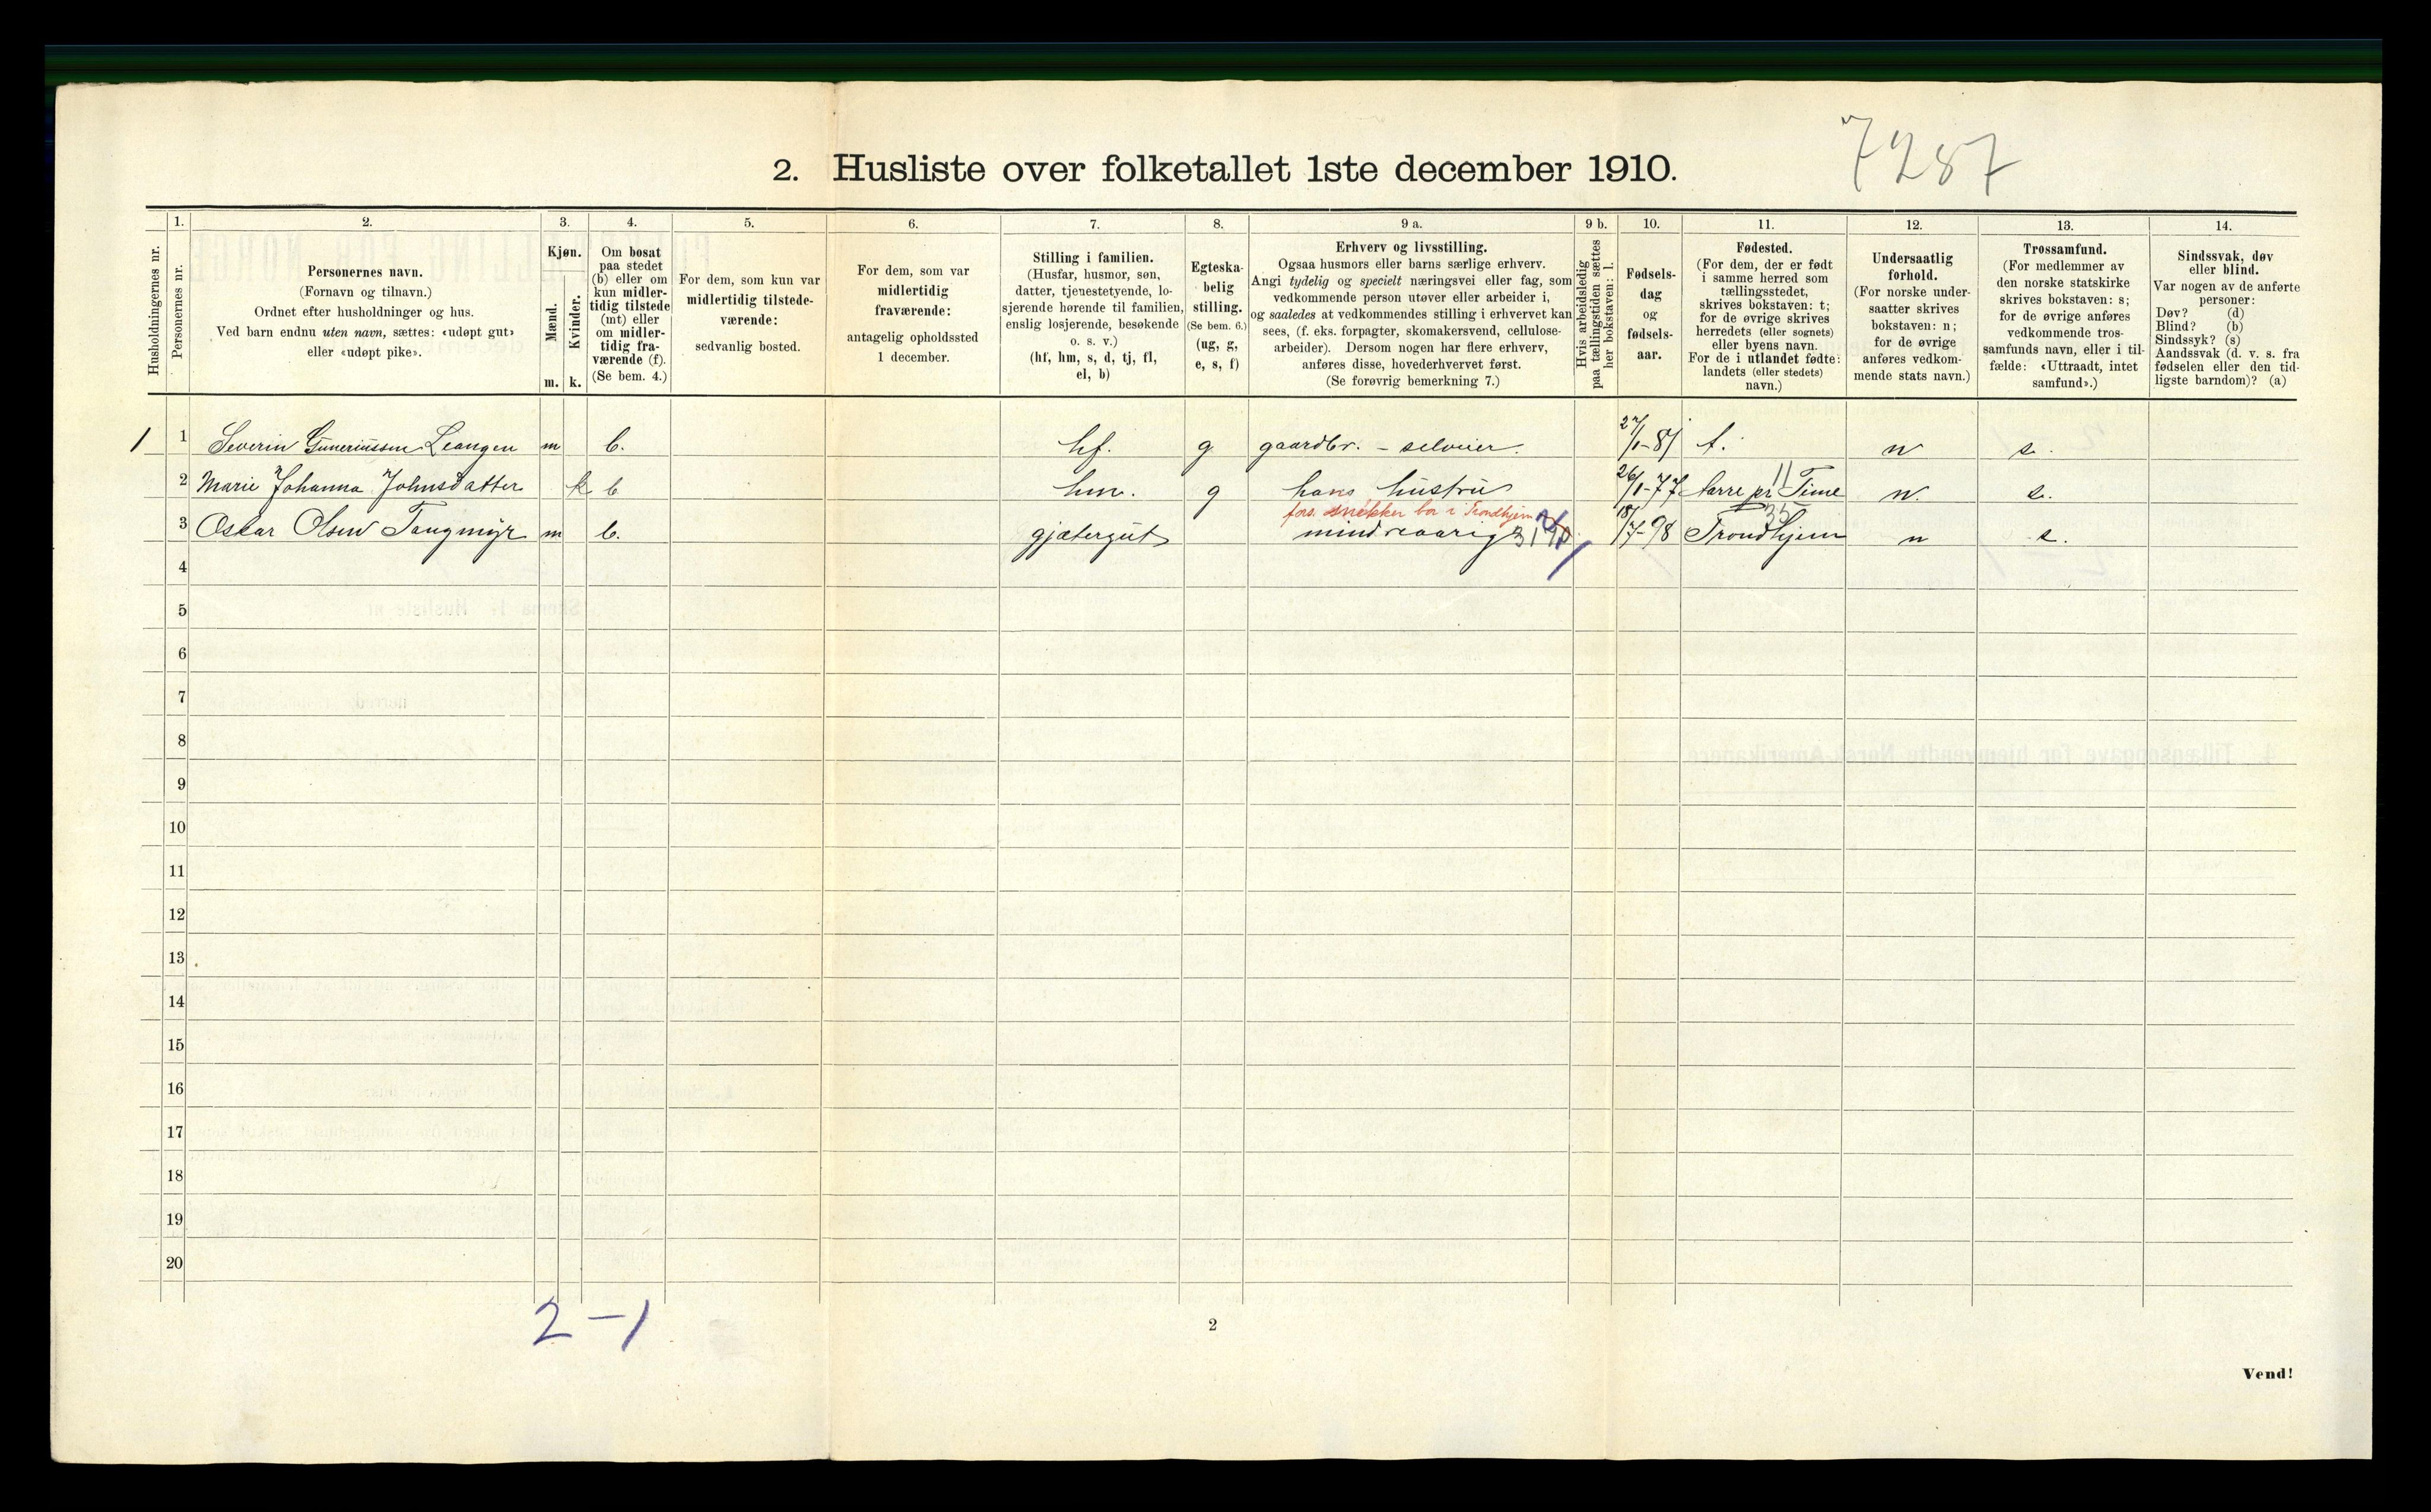 7287
2. Husliste over folketallet 1ste december 1910.
Husholdningernes nr.
1.
Personernes nr.
2.
Personernes navn.
(Fornavn og tilnavn.)
Ordnet efter husholdninger og hus.
Ved barn endnu uten navn, sættes: «udøpt gut»
eller «udøpt pike».
3.
Kjøn.
Mænd.
Kvinder.
m. k.
4.
Om bosat
paa stedet
(b) eller om
kun midler-
tidig tilstede
(mt) eller
om midler-
tidig fra-
værende (f).
(Se bem. 4.)
5.
For dem, som kun var
midlertidig tilstede-
værende:
sedvanlig bosted.
6.
For dem, som var
midlertidig
fraværende:
antagelig opholdssted
1 december.
7.
Stilling i familien.
(Husfar, husmor, søn,
datter, tjenestetyende, lo-
sjerende hørende til familien,
enslig losjerende, besøkende
o. s. v.)
(hf, hm, s, d, tj, fl,
el, b)
8.
Egteska-
belig
stilling.
(Se bem. 6.)
(ug, g,
e, s, f)
9 a.
Erhverv og livsstilling.
Ogsaa husmors eller barns særlige erhverv.
Angi tydelig og specielt næringsvei eller fag, som
vedkommende person utøver eller arbeider i,
og saaledes at vedkommendes stilling i erhvervet kan
sees, (f. eks. forpagter, skomakersvend, cellulose-
arbeider). Dersom nogen har flere erhverv,
anføres disse, hovederhvervet først.
(Se forøvrig bemerkning 7.)
9 b.
Hvis arbeidsledig
paa tællingstiden sættes
her bokstaven: l.
10.
Fødsels-
dag
og
fødsels-
aar.
11.
Fødested.
(For dem, der er født
i samme herred som
tællingsstedet,
skrives bokstaven: t;
for de øvrige skrives
herredets (eller sognets)
eller byens navn.
For de i utlandet fødte:
landets (eller stedets)
navn.)
12.
Undersaatlig
forhold.
(For norske under-
saatter skrives
bokstaven: n;
for de øvrige
anføres vedkom-
mende stats navn.)
13.
Trossamfund.
(For medlemmer av
den norske statskirke
skrives bokstaven: s;
for de øvrige anføres
vedkommende tros-
samfunds navn, eller i til-
fælde: «Uttraadt, intet
samfund».)
14.
Sindssvak, døv
eller blind.
Var nogen av de anførte
personer:
Døv? (d)
Blind? (b)
Sindssyk? (s)
Aandssvak (d. v. s. fra
fødselen eller den tid-
ligste barndom)? (a)
1 1 Severin Guneriussen Leangen m b. hf. g gaardbr. - selveier. 27/1-81 t. n s.
2 Marie Johanna Johnsdatter k b hm. g hans hustru 26/1-77 11 n. s.
fors. snekker bor i Trondhjem 35
3 Oskar Olsen Tangmyr m b. gjætergut mindreaarig 18/7-98 Trondhjem n s.
4
5
6
7
8
9
10
11
12
13
14
15
16
17
18
19
20
2 - 1
2
Vend!